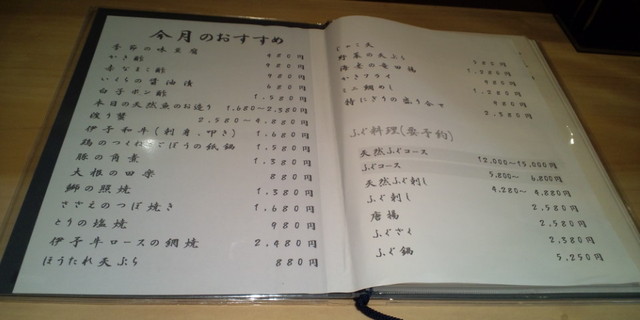 今月のおすすめ
季節の味豆腐 480円
かき酢 980円
赤なまこ酢 980円
いくらの醤油漬 680円
白子ポン酢 1.580円
本日の天然魚のお造り 1.680〜2.380円
渡り蟹 2.580〜4.880円
伊予和牛(刺身.叩き) 1.680円
鶏のつくねごぼうの鉄鍋 1.580円
豚の角煮 1.380円
大根の田楽 880円
鰤の照焼 1.380円
さざえのつぼ焼き 1.680円
とりの塩焼 980円
伊予牛ロースの網焼 2.480円
ほうたれ天ぷら 880円
じゃこ天
野菜の天ぷら 580円
海老の竜田揚 1.280円
かきフライ 980円
ミニ鯛めし 1.280円
特にぎりの盛り合せ 2.380円
ふぐ料理(要予約)
天然ふぐコース 12,000〜15,000円
ふぐコース 5.800〜 6.800円
天然ふぐ刺し 4.280〜 4.880円
ふぐ刺し 2.580円
唐揚 2.580円
ふぐさく 2.380円
ふぐ鍋 5,250円